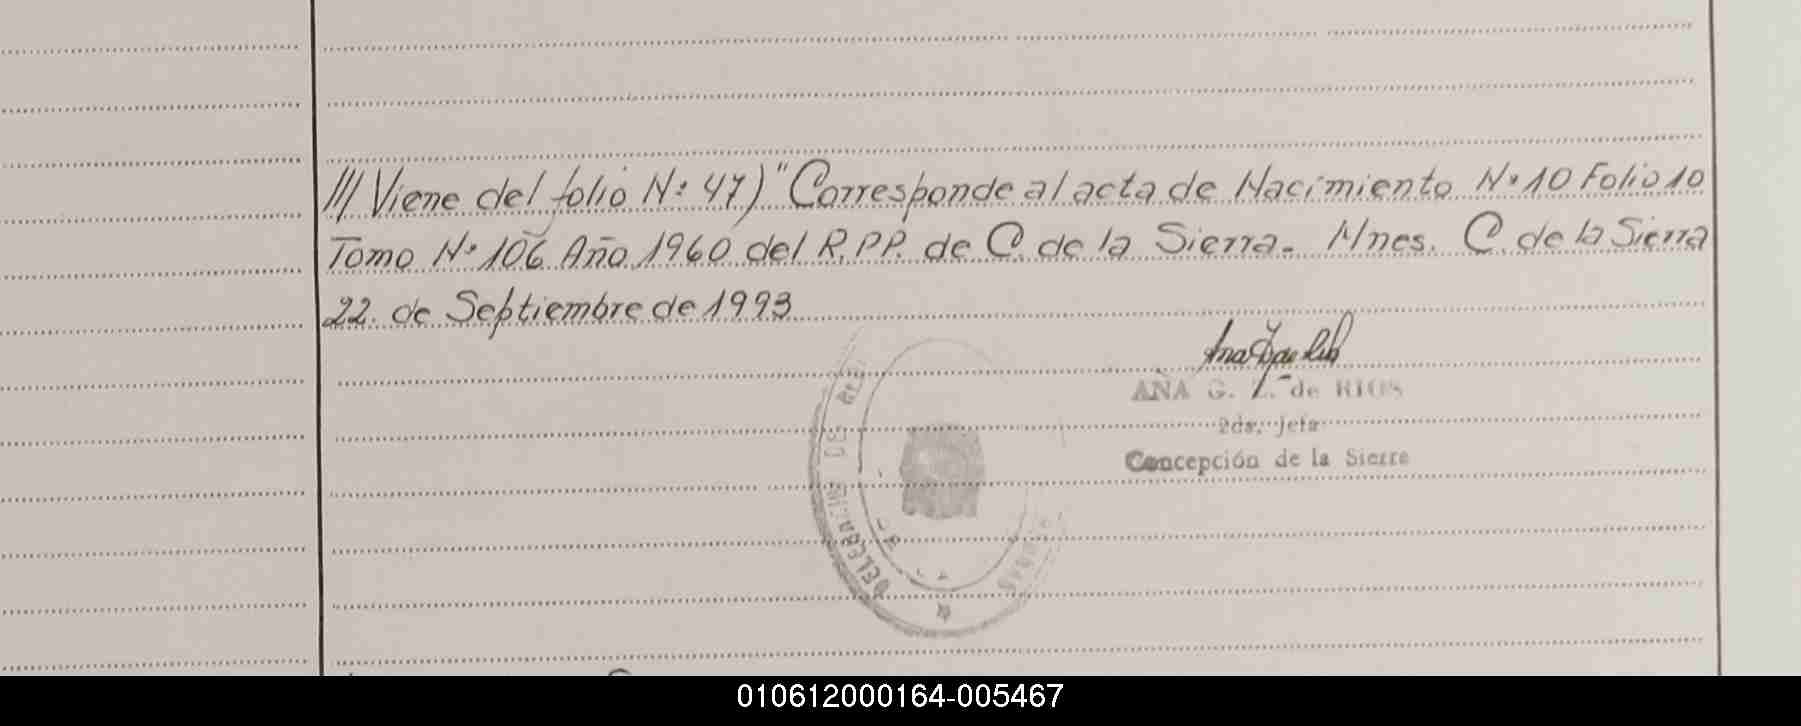 /// Viene del folio N: 47) "Corresponde al acta de Nacimiento N: 10 Folio 10
Tomo N: 106 Año 1960 del R.P.P. de C. de la Sierra. Mnes. C. de la Sierra
22 de Septiembre de 1993
ANA G. Z. de RIOS
2da. Jefa
Concepción de la Sierra
DELEGACION DE
010612000164-005467